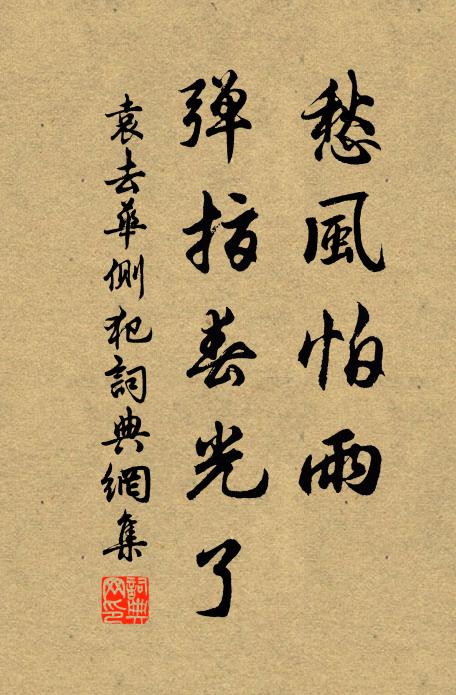 愁風怕雨
弹指春光了
袁去華側犯詞典網集
詞典网印